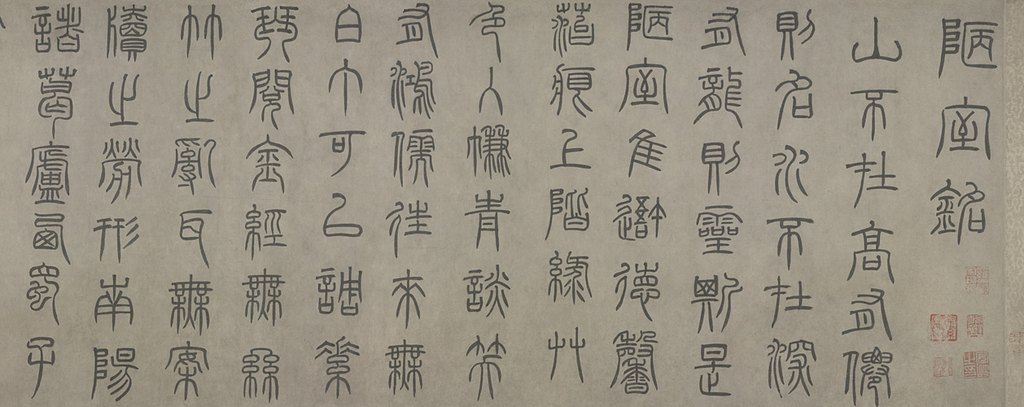 陋室銘
山不在高有僊
則名水不在深
有龍則靈斯是
陋室隹吾德馨
菭痕上階緣艸
色入㡘青談笑
有鴻儒往來無
白丁可以調素
琴閱金經無絲
竹之亂耳無案
牘之勞形南陽
諸葛廬西蜀子